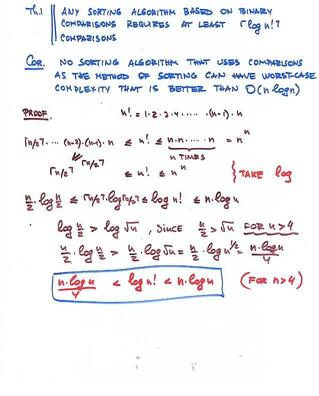 Th.1 ANY SORTING ALGORITHM BASED ON BINARY
COMPARISONS REQUIRES AT LEAST ⌈log n!⌉
COMPARISONS
COR. NO SORTING ALGORITHM THAT USES COMPARISONS
AS THE METHOD OF SORTING CAN HAVE WORST-CASE
COMPLEXITY THAT IS BETTER THAN O(n log n)
PROOF. n! = 1·2·3·4·....·(n-1)·n
⌈n/2⌉·...·(n-2)·(n-1)·n ≤ n! ≤ n·n·...·n = nⁿ
n TIMES
⌈n/2⌉^⌈n/2⌉ ≤ n! ≤ nⁿ } TAKE log
n/2·log n/2 ≤ ⌈n/2⌉·log⌈n/2⌉ ≤ log n! ≤ n·log n
log n/2 > log √n, SINCE n/2 > √n FOR n>4
n/2·log n/2 > n/2·log √n = n/2·log n^1/2 = n·log n/4
n·log n/4 < log n! < n·log n (FOR n>4)